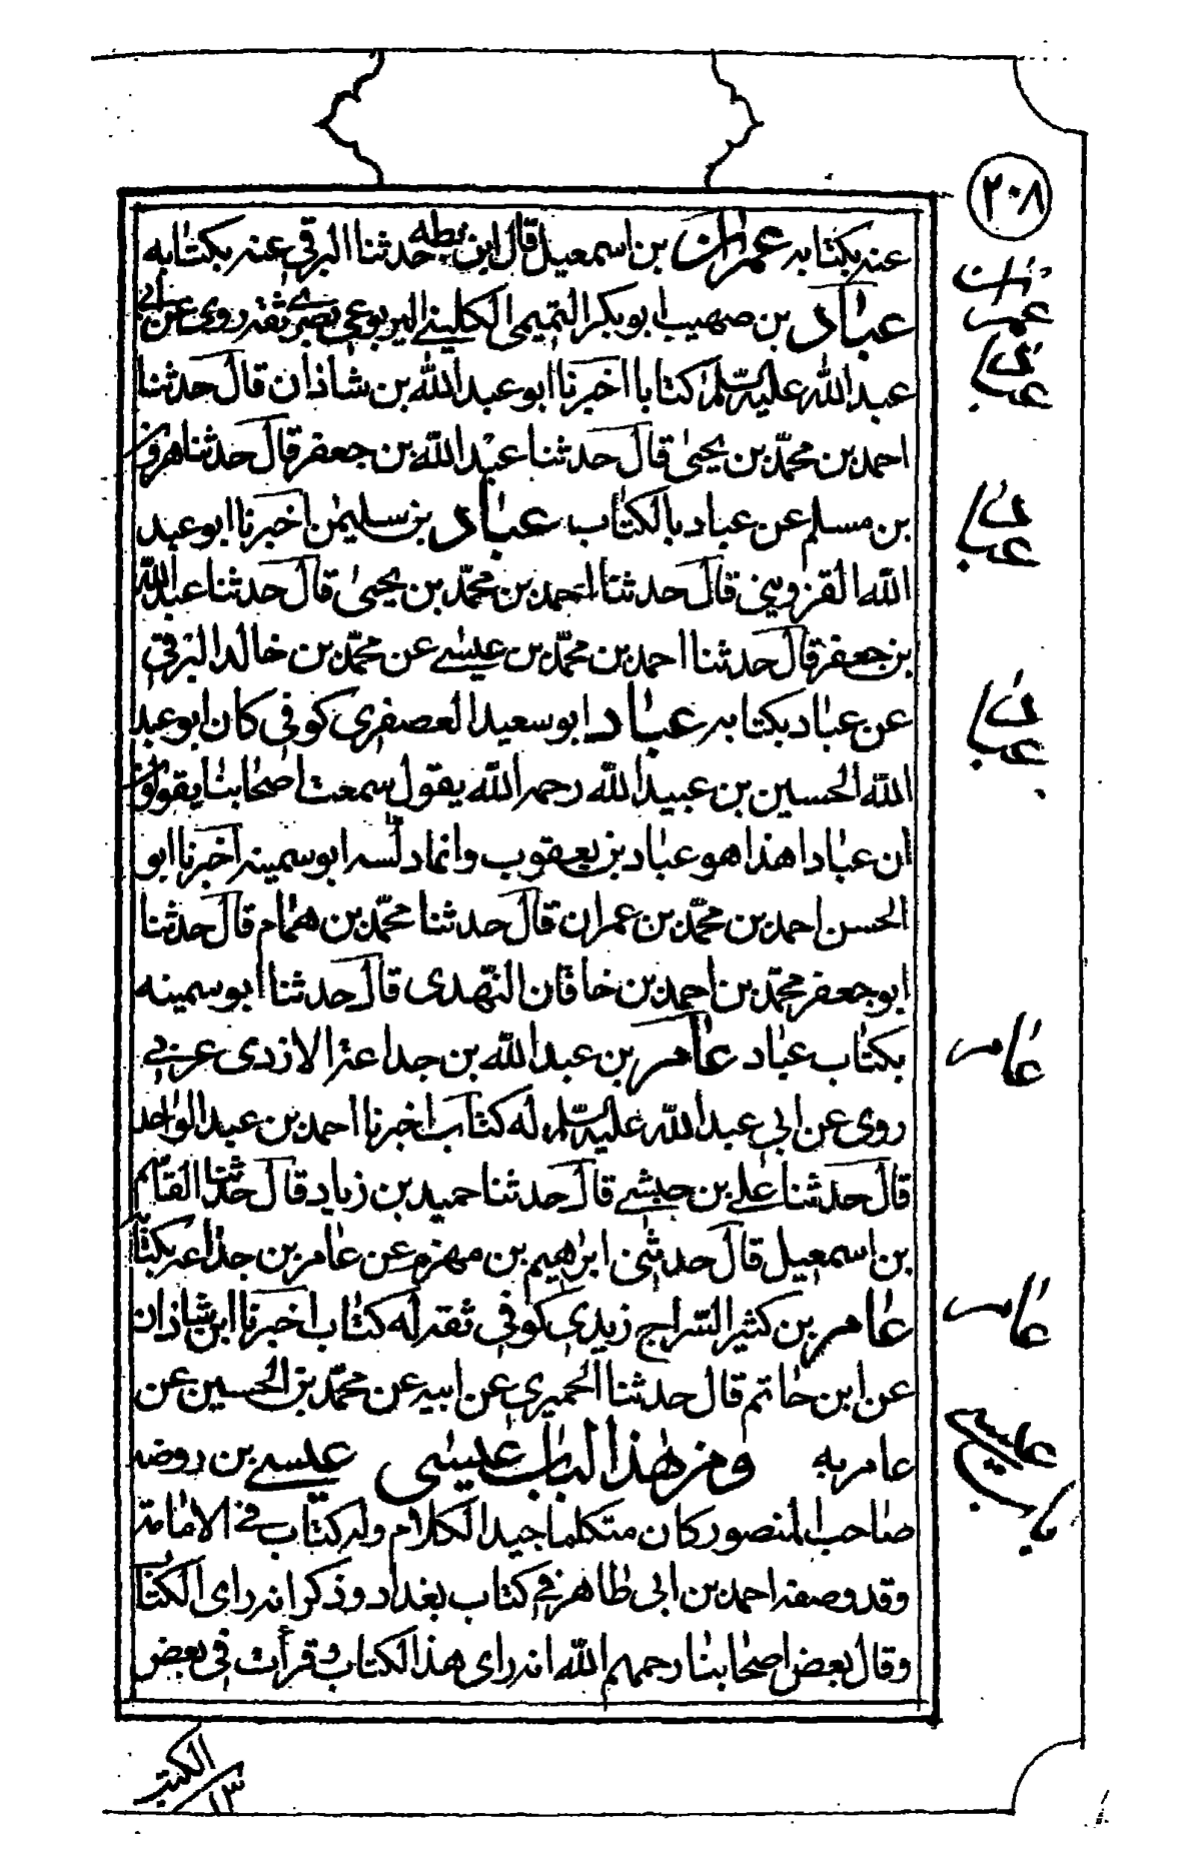 ٢٠٨
عنه بكتابه عمران بن اسمعيل قال ابن بطه حدثنا البرقي عنه بكتابه
عباد بن صهيب ابو بكر التميمي الكليني اليربوعي بصري ثقه روى عن ابي
عبد الله عليه السلم كتابا اخبرنا ابو عبد الله بن شاذان قال حدثنا
احمد بن محمد بن يحيى قال حدثنا عبد الله بن جعفر قال حدثنا هرون
بن مسلم عن عباد بالكتاب عباد بن سليمن اخبرنا ابو عبد
الله القزويني قال حدثنا احمد بن محمد بن يحيى قال حدثنا عبد الله
بن جعفر قال حدثنا احمد بن محمد بن عيسى عن محمد بن خالد البرقي
عن عباد بكتابه عباد ابو سعيد العصفري كوفي كان ابو عبد
الله الحسين بن عبيد الله رحمه الله يقول سمعت اصحابنا يقولون
ان عبادا هذا هو عباد بن يعقوب وانما دلسه ابو سمينه اخبرنا ابو
الحسن احمد بن محمد بن عمران قال حدثنا محمد بن همام قال حدثنا
ابو جعفر محمد بن احمد بن خاقان النهدى قال حدثنا ابو سمينه
بكتاب عباد عامر بن عبد الله بن جداعة الازدى عربي
روى عن ابي عبد الله عليه السلم له كتاب اخبرنا احمد بن عبد الواحد
قال حدثنا علي بن حبشي قال حدثنا حميد بن زياد قال حدثنا القاسم
بن اسمعيل قال حدثني ابرهيم بن مهزم عن عامر بن جذاعه بكتابه
عامر بن كثير السراج زيدي كوفي ثقه له كتاب اخبرنا ابن شاذان
عن ابن حاتم قال حدثنا الحميري عن ابيه عن محمد بن الحسين عن
عامر به ومن هذا الباب عيسى عيسى بن روضه
صاحب المنصور كان متكلما جيد الكلام وله كتاب في الامامة
وقد وصفه احمد بن ابي طاهر في كتاب بغداد وذكر انه راى الكتاب
وقال بعض اصحابنا رحمهم الله انه راى هذا الكتاب وقرأت في بعض
عمران
عباد
عباد
عباد
عامر
عامر
عيسى
الكتب
١٣